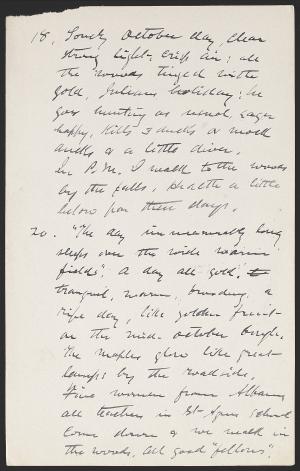 18. Lovely October day, clear
strong light, crisp air; all
the woods tinged with
gold, Julians holiday; he
goes hunting as usual, eager
happy, kills 3 ducks
and a little diver.
In P.M. I walk to the woods
by the falls, health a little
below par these days.
20. "The day immeasurably long
sleeps over the wide warm
fields". A day all gold,
tranquil, warm, brooding, a
ripe day, like golden fruit
on the mid-October bough.
The maples glow like great
lamps by the roadside,
Five women from Albany
all teachers in St Agnes School
come down & we walk in
the woods. All good "fellows".